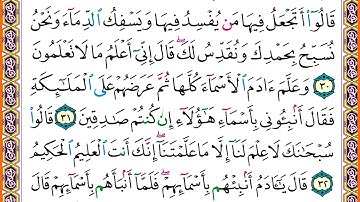 قَالُوٓا۟ أَتَجْعَلُ فِيهَا مَن يُفْسِدُ فِيهَا وَيَسْفِكُ ٱلدِّمَآءَ وَنَحْنُ
نُسَبِّحُ بِحَمْدِكَ وَنُقَدِّسُ لَكَ ۖ قَالَ إِنِّىٓ أَعْلَمُ مَا لَا تَعْلَمُونَ
٣٠ وَعَلَّمَ ءَادَمَ ٱلْأَسْمَآءَ كُلَّهَا ثُمَّ عَرَضَهُمْ عَلَى ٱلْمَلَـٰٓئِكَةِ
فَقَالَ أَنۢبِـُٔونِى بِأَسْمَآءِ هَـٰٓؤُلَآءِ إِن كُنتُمْ صَـٰدِقِينَ ٣١ قَالُوا۟
سُبْحَـٰنَكَ لَا عِلْمَ لَنَآ إِلَّا مَا عَلَّمْتَنَآ ۖ إِنَّكَ أَنتَ ٱلْعَلِيمُ ٱلْحَكِيمُ
٣٢ قَالَ يَـٰٓـَٔادَمُ أَنۢبِئْهُم بِأَسْمَآئِهِمْ ۖ فَلَمَّآ أَنۢبَأَهُم بِأَسْمَآئِهِمْ قَالَ